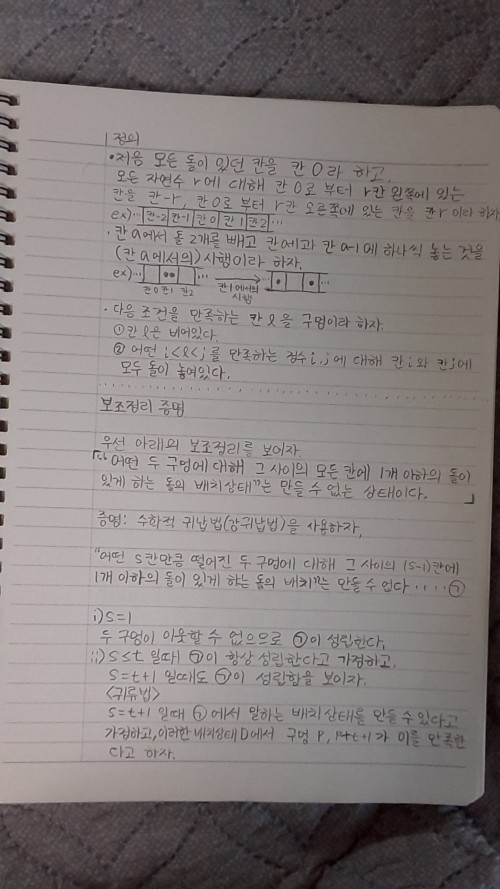 정의
• 처음 모든 돌이 있던 칸을 칸 0라 하고,
모든 자연수 r에 대해 칸 0로 부터 r칸 왼쪽에 있는
칸을 칸 -r, 칸 0로 부터 r칸 오른쪽에 있는 칸을 칸 r 이라 하자
ex) ··· 칸-2 칸-1 칸 0 칸 1 칸 2 ···
• 칸 a에서 돌 2개를 빼고 칸 a+1과 칸 a-1에 하나씩 놓는 것을
(칸 a에서의) 시행이라 하자.
ex) ··· ···
칸0 칸1 칸2 칸1에서의
시행
• 다음 조건을 만족하는 칸 l을 구멍이라 하자.
① 칸 l은 비어있다.
② 어떤 i<l<j를 만족하는 정수 i, j에 대해 칸 i와 칸 j에
모두 돌이 놓여있다.
보조정리 증명
우선 아래의 보조정리를 보이자.
「"어떤 두 구멍에 대해 그 사이의 모든 칸에 1개 이하의 돌이
있게 하는 돌의 배치상태"는 만들 수 없는 상태이다.」
증명: 수학적 귀납법(강귀납법)을 사용하자,
"어떤 s칸만큼 떨어진 두 구멍에 대해 그 사이의 (s-1)칸에
1개 이하의 돌이 있게 하는 돌의 배치"는 만들 수 없다 ···· ㉠
i) s=1
두 구멍이 이웃할 수 없으므로 ㉠이 성립한다.
ii) s≤t 일때 ㉠이 항상 성립한다고 가정하고,
s=t+1 일때도 ㉠이 성립함을 보이자.
<귀류법>
s=t+1 일때 ㉠에서 말하는 배치상태를 만들 수 있다고
가정하고, 이러한 배치상태 D에서 구멍 P, P+t+1가 이를 만족한
다고 하자.